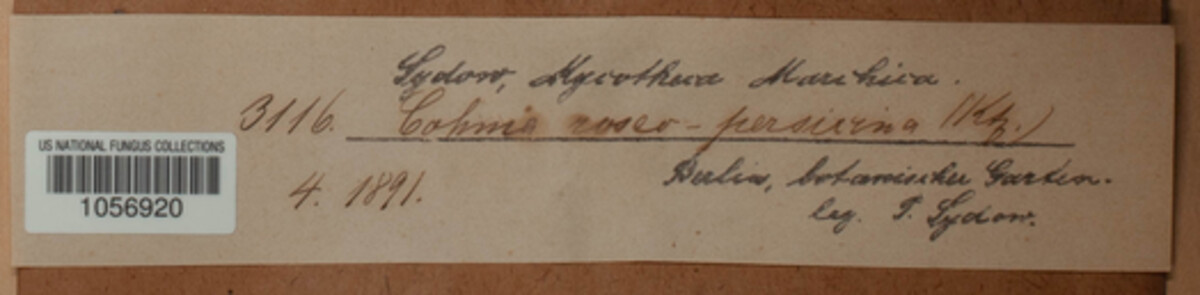 Sydow, Mycotheca Marchica.
3116. Cohnia roseo-persicina (Ktz.)
US NATIONAL FUNGUS COLLECTIONS
1056920
4. 1891.
Berlin, botanischer Garten.
leg. P. Sydow.